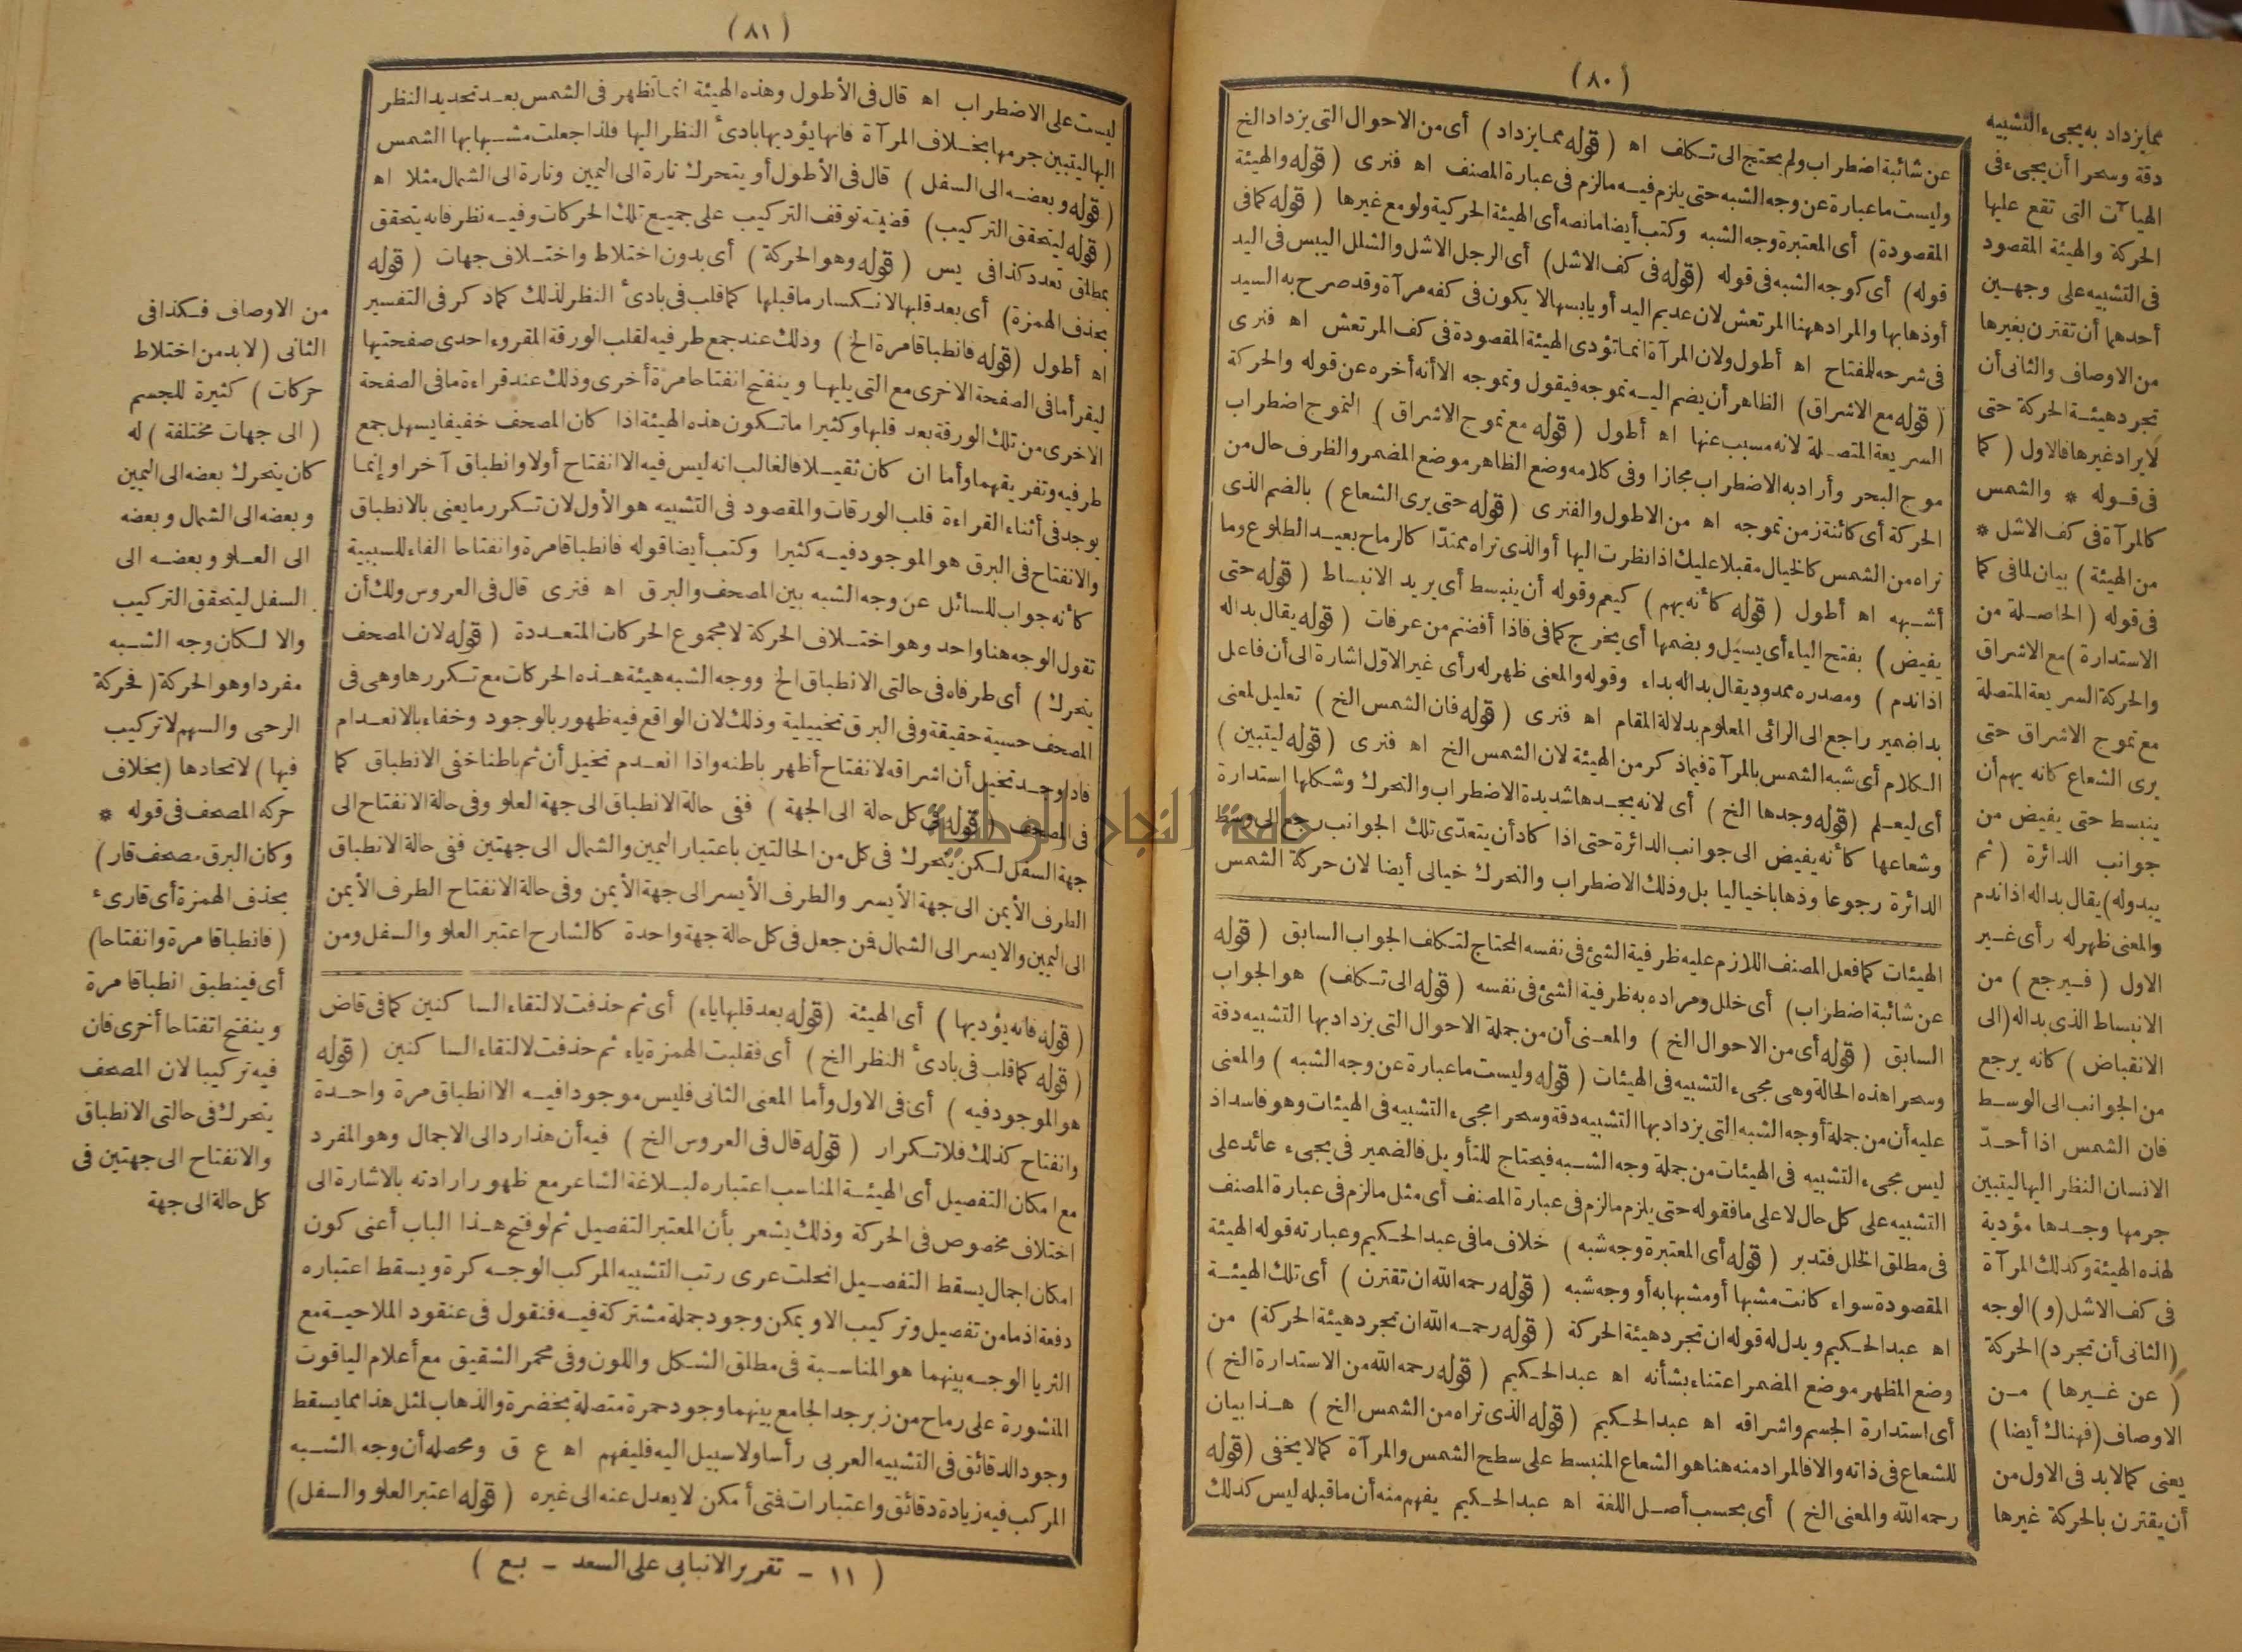 (٨٠)
مما يزداد به يجىء التشبيه
دقة وسحرا أن يجىء فى
الهيآت التى تقع عليها
الحركة والهيئة المقصود
فى التشبيه على وجهين
أحدهما أن تقترن بغيرها
من الاوصاف والثانى أن
تجرد هيئة الحركة حتى
لا يراد غيرها فالاول (كما
فى قوله * والشمس
كالمرآة فى كف الاشل *
من الهيئة) بيان لما فى كما
فى قوله (الحاصلة من
الاستدارة) مع الاشراق
والحركة السريعة المتصلة
مع تموج الاشراق حتى
يرى الشعاع كانه يهم أن
ينبسط حتى يفيض من
جوانب الدائرة (ثم
يبدوله) يقال بداله اذا ندم
والمعنى ظهر له رأى غير
الاول (فيرجع) من
الانبساط الذى بداله (الى
الانقباض) كانه يرجع
من الجوانب الى الوسط
فان الشمس اذا أحدّ
الانسان النظر اليها ليتبين
جرمها وجدها مؤدية
لهذه الهيئة وكذلك المرآة
فى كف الاشل (و) الوجه
(الثانى أن تجرد) الحركة
(عن غيرها) من
الاوصاف (فهناك أيضا)
يعنى كما لا بد فى الاول من
أن يقترن بالحركة غيرها
عن شائبة اضطراب ولم يحتج الى تكلف اه (قوله مما يزداد) أى من الاحوال التى يزداد الخ
وليست ما عبارة عن وجه الشبه حتى يلزم فيه ما لزم فى عبارة المصنف اه فنرى (قوله والهيئة
المقصودة) أى المعتبرة وجه الشبه وكتب أيضا ما نصه أى الهيئة الحركية ولو مع غيرها (قوله كما فى
قوله) أى كوجه الشبه فى قوله (قوله فى كف الاشل) أى الرجل الاشل والشلل اليبس فى اليد
أو ذهابها والمراد ههنا المرتعش لان عديم اليد أو يابسها لا يكون فى كفه مرآة وقد صرح به السيد
فى شرحه للمفتاح اه أطول ولان المرآة انما تؤدى الهيئة المقصودة فى كف المرتعش اه فنرى
(قوله مع الاشراق) الظاهر أن يضم اليه تموجه فيقول وتموجه الا أنه أخره عن قوله والحركة
السريعة المتصلة لانه مسبب عنها اه أطول (قوله مع تموج الاشراق) التموج اضطراب
موج البحر وأراد به الاضطراب مجازا وفى كلامه وضع الظاهر موضع المضمر والظرف حال من
الحركة أى كائنة زمن تموجه اه من الاطول والفنرى (قوله حتى يرى الشعاع) بالضم الذى
تراه من الشمس كالخيال مقبلا عليك اذا نظرت اليها أو الذى تراه ممتدّا كالرماح بعيد الطلوع وما
أشبهه اه أطول (قوله كأنه يهم) كيعم وقوله أن ينبسط أى يريد الانبساط (قوله حتى
يفيض) بفتح الياء أى يسيل وبضمها أى يخرج كما فى فاذا أفضتم من عرفات (قوله يقال بداله
اذا ندم) ومصدره ممدود يقال بداله بداء وقوله والمعنى ظهر له رأى غير الاوّل اشارة الى أن فاعل
بدا ضمير راجع الى الرائى المعلوم بدلالة المقام اه فنرى (قوله فان الشمس الخ) تعليل لمعنى
الكلام أى شبه الشمس بالمرآة فيما ذكر من الهيئة لان الشمس الخ اه فنرى (قوله ليتبين)
أى ليعلم (قوله وجدها الخ) أى لانه يجدها شديدة الاضطراب والتحرك وشكلها استدارة
وشعاعها كأنه يفيض الى جوانب الدائرة حتى اذا كاد أن يتعدّى تلك الجوانب رجع الى وسط
الدائرة رجوعا وذهابا خياليا بل وذلك الاضطراب والتحرك خيالى أيضا لان حركة الشمس
الهيئات كما فعل المصنف اللازم عليه ظرفية الشئ فى نفسه المحتاج لتكلف الجواب السابق (قوله
عن شائبة اضطراب) أى خلل ومراده به ظرفية الشئ فى نفسه (قوله الى تكلف) هو الجواب
السابق (قوله أى من الاحوال الخ) والمعنى أن من جملة الاحوال التى يزداد بها التشبيه دقة
وسحرا هذه الحالة وهى مجىء التشبيه فى الهيئات (قوله وليست ما عبارة عن وجه الشبه) والمعنى
عليه أن من جملة أوجه الشبه التى يزداد بها التشبيه دقة وسحرا مجىء التشبيه فى الهيئات وهو فاسد اذ
ليس مجىء التشبيه فى الهيئات من جملة وجه الشبه فيحتاج للتأويل فالضمير فى يجىء عائد على
التشبيه على كل حال لا على ما فقوله حتى يلزم ما لزم فى عبارة المصنف أى مثل ما لزم فى عبارة المصنف
فى مطلق الخلل فتدبر (قوله أى المعتبرة وجه شبه) خلاف ما فى عبد الحكيم وعبارته قوله الهيئة
المقصودة سواء كانت مشبها أو مشبها به أو وجه شبه (قوله رحمه الله ان تقترن) أى تلك الهيئة
اه عبد الحكيم ويدل له قوله ان تجرد هيئة الحركة (قوله رحمه الله ان تجرد هيئة الحركة) من
وضع المظهر موضع المضمر اعتناء بشأنه اه عبد الحكيم (قوله رحمه الله من الاستدارة الخ)
أى استدارة الجسم واشراقه اه عبد الحكيم (قوله الذى تراه من الشمس الخ) هذا بيان
للشعاع فى ذاته والا فالمراد منه هنا هو الشعاع المنبسط على سطح الشمس والمرآة كما لا يخفى (قوله
رحمه الله والمعنى الخ) أى بحسب أصل اللغة اه عبد الحكيم يفهم منه أن ما قبله ليس كذلك
(٨١)
ليست على الاضطراب اه قال فى الأطول وهذه الهيئة انما تظهر فى الشمس بعد تحديد النظر
اليها ليتبين جرمها بخلاف المرآة فانها يؤديها بادئ النظر اليها فلذا جعلت مشبها بها الشمس
(قوله وبعضه الى السفل) قال فى الأطول أو يتحرك تارة الى اليمين وتارة الى الشمال مثلا اه
(قوله ليتحقق التركيب) قضيته توقف التركيب على جميع تلك الحركات وفيه نظر فانه يتحقق
بمطلق تعدد كذا فى يس (قوله وهو الحركة) أى بدون اختلاط واختلاف جهات (قوله
بحذف الهمزة) أى بعد قلبها لانكسار ما قبلها كما قلب فى بادئ النظر لذلك كما ذكر فى التفسير
اه أطول (قوله فانطباقا مرة الخ) وذلك عند جمع طرفيه لقلب الورقة المقروء احدى صفحتيها
ليقرأ ما فى الصفحة الاخرى مع التى يليها وينفتح انفتاحا مرة أخرى وذلك عند قراءة ما فى الصفحة
الاخرى من تلك الورقة بعد قلبها وكثيرا ما تكون هذه الهيئة اذا كان المصحف خفيفا يسهل جمع
طرفيه وتفريقهما وأما ان كان ثقيلا فالغالب انه ليس فيه الا انفتاح أولا وانطباق آخرا وإنما
يوجد فى أثناء القراءة قلب الورقات والمقصود فى التشبيه هو الأول لان تكرر ما يعنى بالانطباق
والانفتاح فى البرق هو الموجود فيه كثيرا وكتب أيضا قوله فانطباقا مرة وانفتاحا الفاء للسببية
كأنه جواب للسائل عن وجه الشبه بين المصحف والبرق اه فنرى قال فى العروس ولك أن
تقول الوجه هنا واحد وهو اختلاف الحركة لا مجموع الحركات المتعددة (قوله لان المصحف
يتحرك) أى طرفاه فى حالتى الانطباق الخ ووجه الشبه هيئة هذه الحركات مع تكررها وهى فى
المصحف حسية حقيقة وفى البرق تخييلية وذلك لان الواقع فيه ظهور بالوجود وخفاء بالانعدام
فاذا وجد تخيل أن اشراقه لانفتاح أظهر باطنه واذا انعدم تخيل أن ثم باطنا خفى الانطباق كما
فى المصحف (قوله فى كل حالة الى الجهة) ففى حالة الانطباق الى جهة العلو وفى حالة الانفتاح الى
جهة السفل لكن يتحرك فى كل من الحالتين باعتبار اليمين والشمال الى جهتين ففى حالة الانطباق
الطرف الأيمن الى جهة الأيسر والطرف الأيسر الى جهة الأيمن وفى حالة الانفتاح الطرف الأيمن
الى اليمين والايسر الى الشمال فمن جعل فى كل حالة جهة واحدة كالشارح اعتبر العلو والسفل ومن
(قوله فانه يؤديها) أى الهيئة (قوله بعد قلبها ياء) أى ثم حذفت لالتقاء الساكنين كما فى قاض
(قوله كما قلب فى بادئ النظر الخ) أى فقلبت الهمزة ياء ثم حذفت لالتقاء الساكنين (قوله
هو الموجود فيه) أى فى الاول وأما المعنى الثانى فليس موجودا فيه الا انطباق مرة واحدة
وانفتاح كذلك فلا تكرار (قوله قال فى العروس الخ) فيه أن هذا رد الى الاجمال وهو المفرد
مع امكان التفصيل أى الهيئة المناسب اعتباره لبلاغة الشاعر مع ظهور ارادته بالاشارة الى
اختلاف مخصوص فى الحركة وذلك يشعر بأن المعتبر التفصيل ثم لو فتح هذا الباب أعنى كون
امكان اجمال يسقط التفصيل انحلت عرى رتب التشبيه المركب الوجه كرة ويسقط اعتباره
دفعة اذ ما من تفصيل وتركيب الا ويمكن وجود جملة مشتركة فيه فنقول فى عنقود الملاحية مع
الثريا الوجه بينهما هو المناسبة فى مطلق الشكل واللون وفى محمر الشقيق مع أعلام الياقوت
المنشورة على رماح من زبرجد الجامع بينهما وجود حمرة متصلة بخضرة والذهاب لمثل هذا مما يسقط
وجود الدقائق فى التشبيه العربى رأسا ولا سبيل اليه فليفهم اه ع ق ومحصله أن وجه الشبه
المركب فيه زيادة دقائق واعتبارات فمتى أمكن لا يعدل عنه الى غيره (قوله اعتبر العلو والسفل)
من الاوصاف فكذا فى
الثانى (لا بد من اختلاط
حركات) كثيرة للجسم
(الى جهات مختلفة) له
كان يتحرك بعضه الى اليمين
وبعضه الى الشمال وبعضه
الى العلو وبعضه الى
السفل ليتحقق التركيب
والا لكان وجه الشبه
مفردا وهو الحركة (فحركة
الرحى والسهم لا تركيب
فيها) لاتحادها (بخلاف
حركه المصحف فى قوله *
وكان البرق مصحف قار)
بحذف الهمزة أى قارىء
(فانطباقا مرة وانفتاحا)
أى فينطبق انطباقا مرة
وينفتح انفتاحا أخرى فان
فيه تركيبا لان المصحف
يتحرك فى حالتى الانطباق
والانفتاح الى جهتين فى
كل حالة الى جهة
(١١ - تقرير الانبابى على السعد - بع)
جامعة النجاح الوطنية